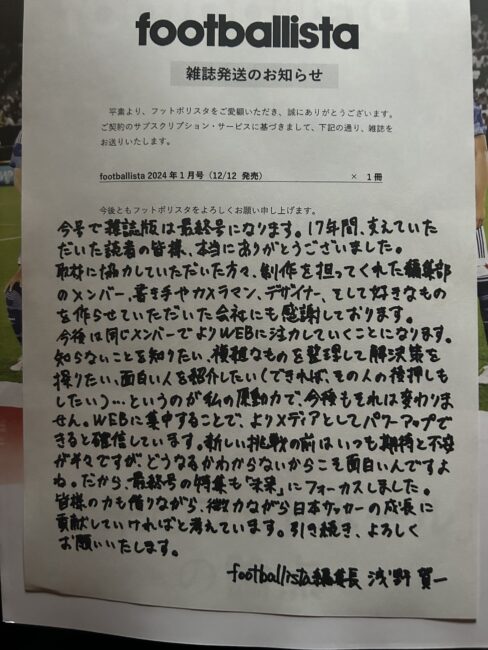 footballista
雑誌発送のお知らせ
平素より、フットボリスタをご愛顧いただき、誠にありがとうございます。
ご契約のサブスクリプション・サービスに基づきまして、下記の通り、雑誌を
お送りいたします。
footballista 2024年1月号（12/12 発売） × 1冊
今後ともフットボリスタをよろしくお願い申し上げます。
今号で雑誌版は最終号になります。17年間、支えていた
だいた読者の皆様、本当にありがとうございました。
取材に協力していただいた方々、制作を担ってくれた編集部
のメンバー、書き手やカメラマン、デザイナー、そして好きなもの
を作らせていただいた会社にも感謝しております。
今後は同じメンバーでよりWEBに注力していくことになります。
知らないことを知りたい、複雑なものを整理して解決策を
探りたい、面白い人を紹介したい（できれば、その人の後押しも
したい）…というのが私の原動力で、今後もそれは変わりま
せん。WEBに集中することで、よりメディアとしてパワーアップで
きると確信しています。新しい挑戦の前はいつも期待と不安
が半々ですが、どうなるかわからないからこそ面白いんですよ
ね。だから、最終号の特集も「未来」にフォーカスしました。
皆様の力も借りながら、微力ながら日本サッカーの成長に
貢献していければと考えています。引き続き、よろしく
お願いいたします。
footballista編集長 浅野賀一